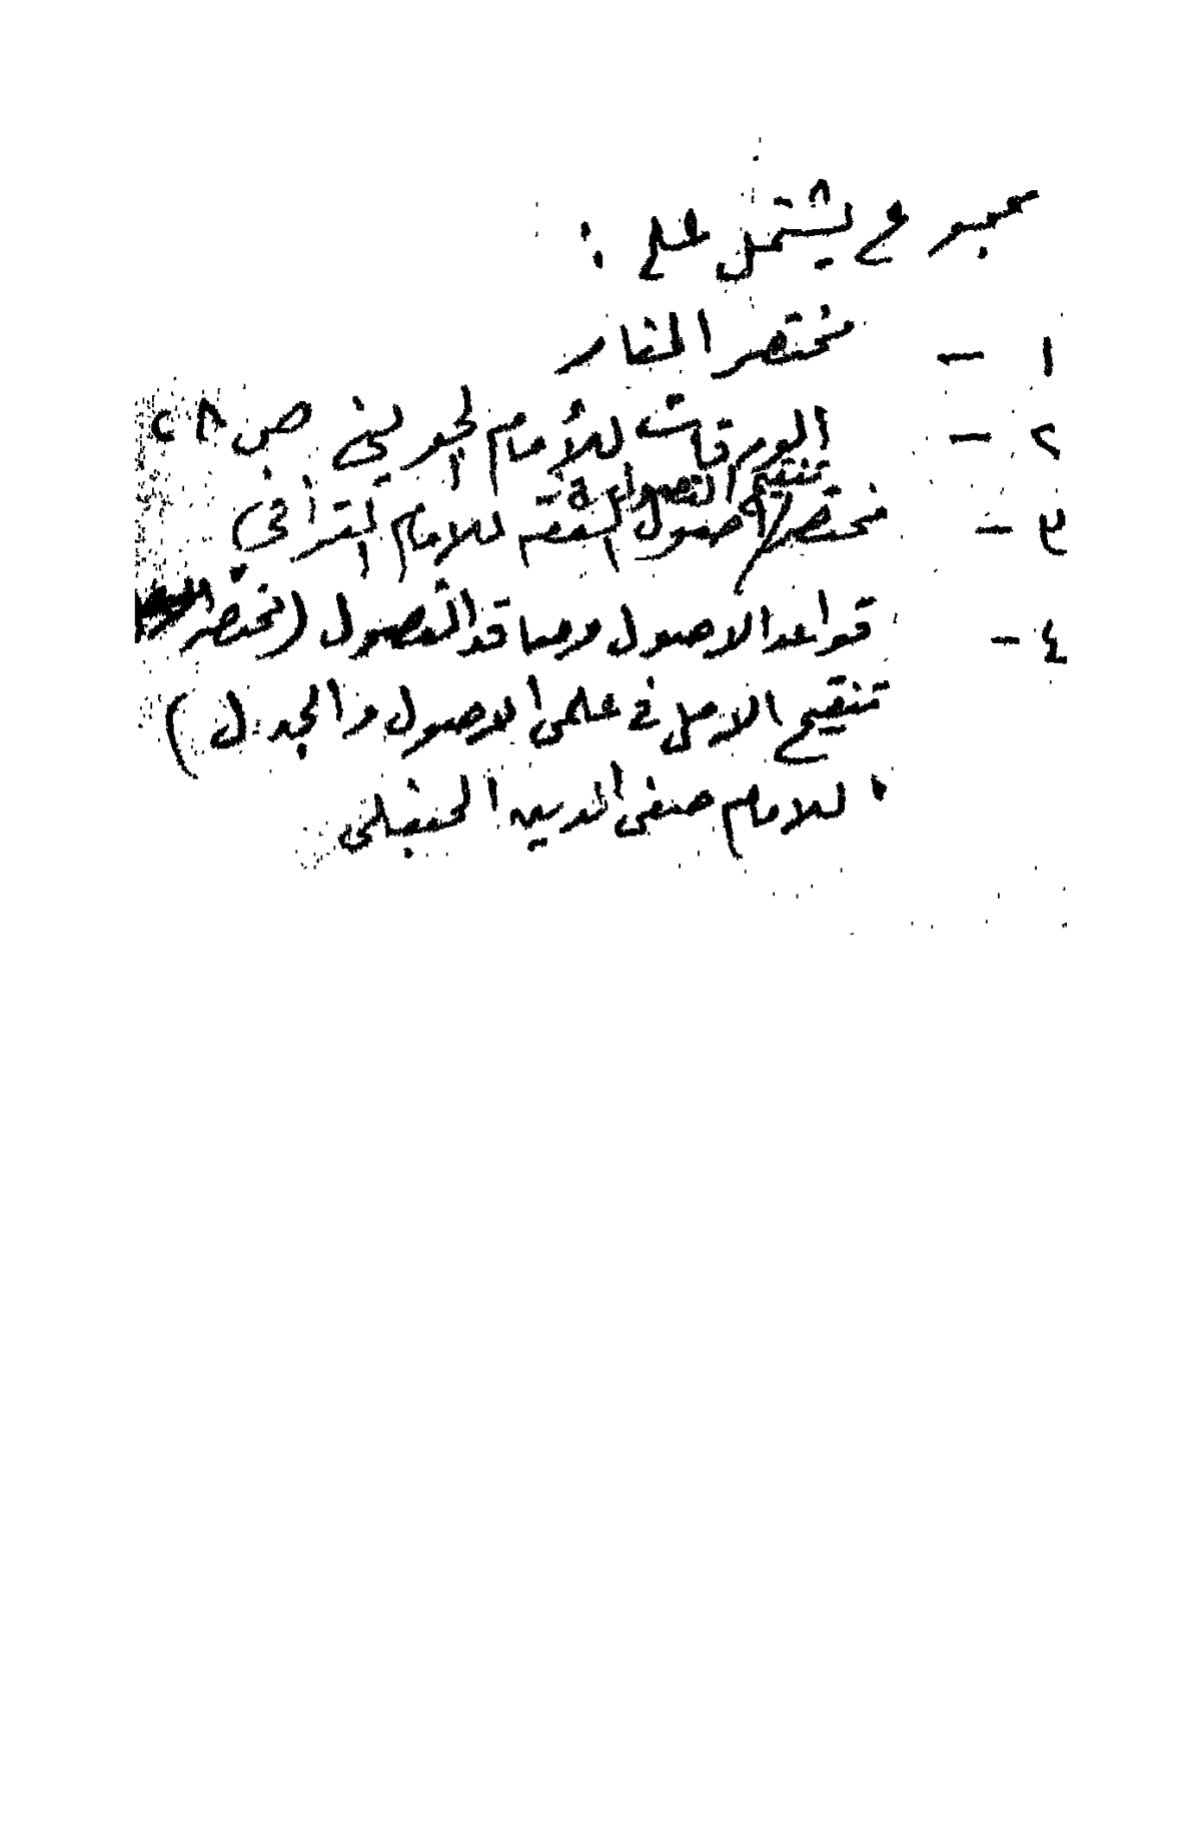 مجموع يشتمل على :
١ - مختصر المنار
٢ - الورقات للأمام الجويني ص ٢٨
تنقيح الفصول في
٣ - مختصر / أصول الفقه للامام القرافي
٤ - قواعد الاصول ومعاقد الفصول (مختصر
تنقيح الامل في علمى الاصول والجدل )
للامام صفى الدين الحنبلى